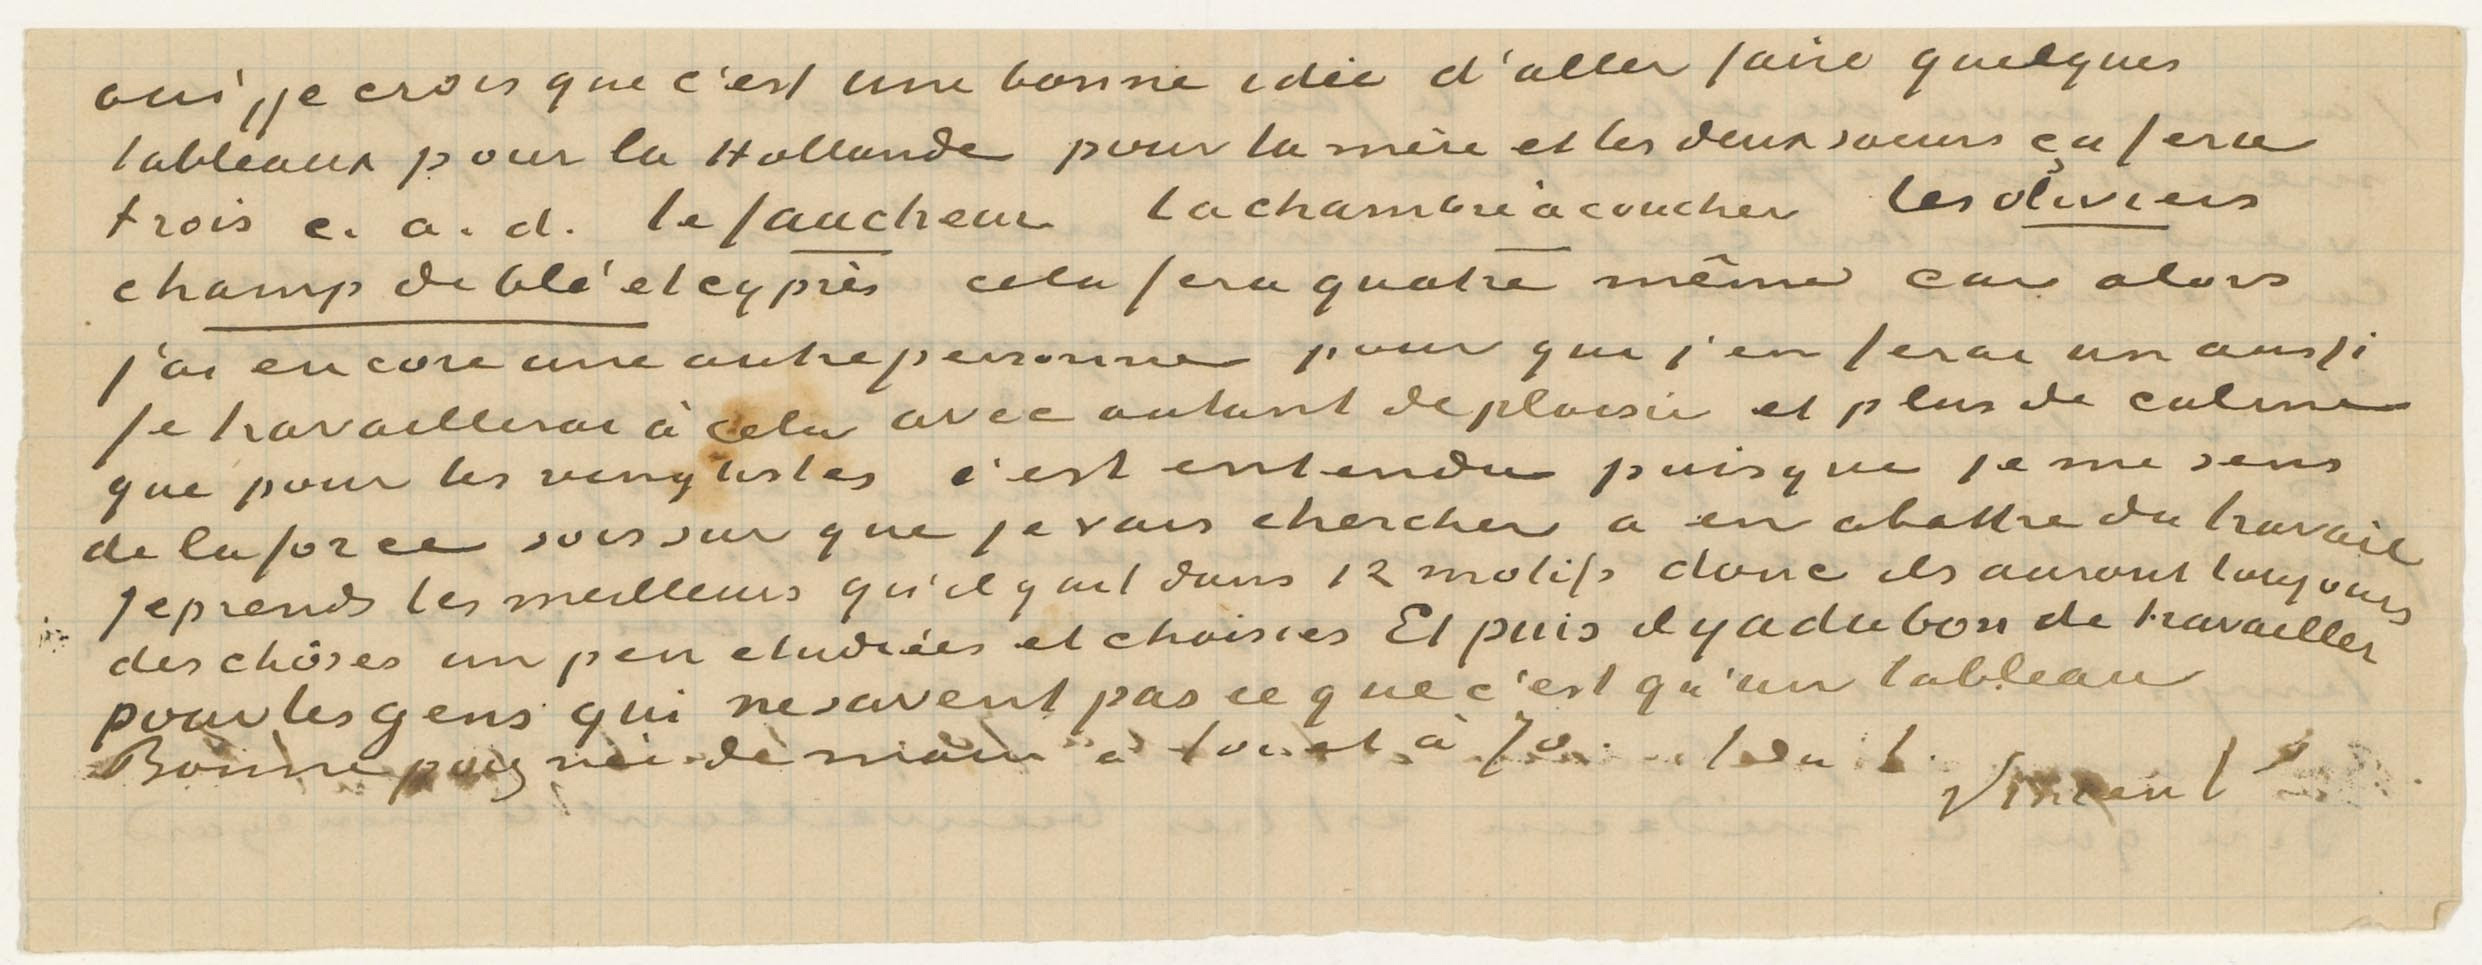 oui, je crois que c'est une bonne idée d'aller faire quelques
tableaux pour la Hollande pour la mère et les deux soeurs ça fera
trois c. a. d. le faucheur la chambre à coucher les oliviers
champ de blé et cyprès cela fera quatre même car alors
j'ai encore une autre personne pour qui j'en ferai un aussi
Je travaillerai à cela avec autant de plaisir et plus de calme
que pour les vingtistes c'est entendu puisque je me sens
de la force sois sur que je vais chercher a en abattre du travail
Je prends les meilleurs qu'il y ait dans 12 motifs donc ils auront toujours
des chôses un peu etudiées et choisies Et puis il y a du bon de travailler
pour les gens qui ne savent pas ce que c'est qu'un tableau
Bonne poignée de main a toi et à Jo. t. à t. Vincent